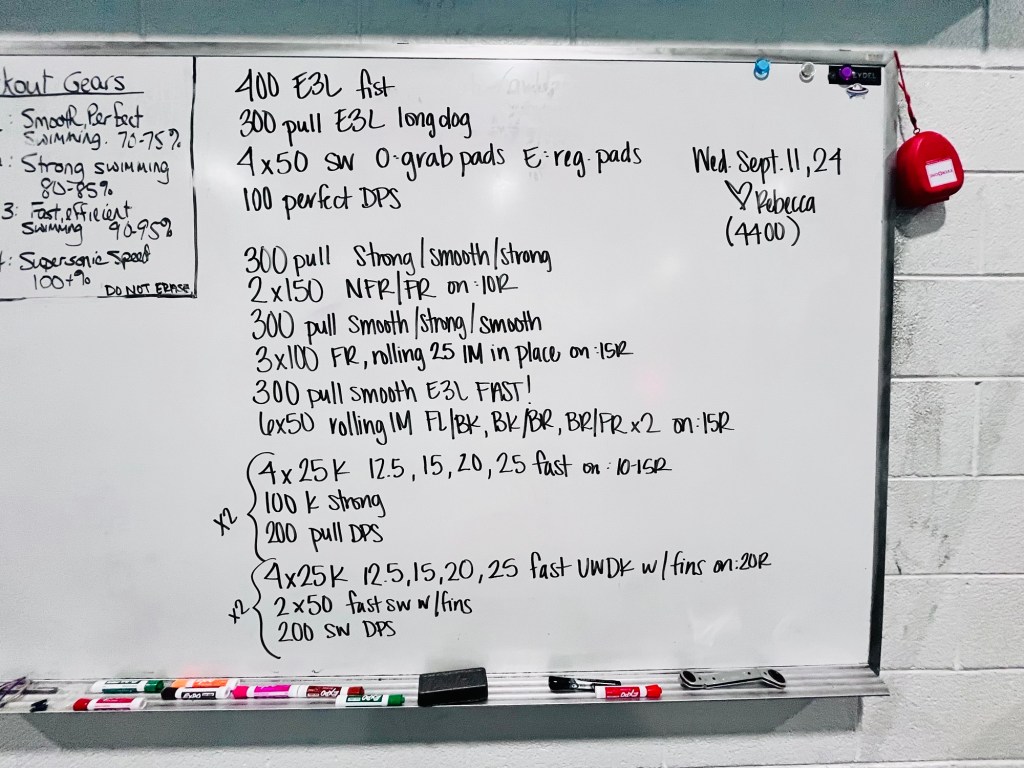 kout Gears
: Smooth, Perfect
Swimming. 70-75%
: Strong swimming
80-85%
3: Fast, efficient
Swimming 90-95%
: Supersonic Speed
100+%
DO NOT ERASE
400 E3L fist
300 pull E3L longdog
4x50 SW O-grab pads E-reg. pads
100 perfect DPS
Wed. Sept. 11, 24
♡ Rebecca
(4400)
300 pull Strong/smooth/strong
2x150 NFR/FR on :10R
300 pull Smooth/strong/smooth
3x100 FR, rolling 25 IM in place on :15R
300 pull smooth E3L FAST!
6x50 rolling IM FL/BK, BK/BR, BR/FR x2 on :15R
x2
4x25K 12.5, 15, 20, 25 fast on :10-15R
100 K strong
200 pull DPS
x2
4x25K 12.5, 15, 20, 25 fast UWDK w/fins on :20R
2x50 fast sw w/fins
200 SW DPS
EXPO